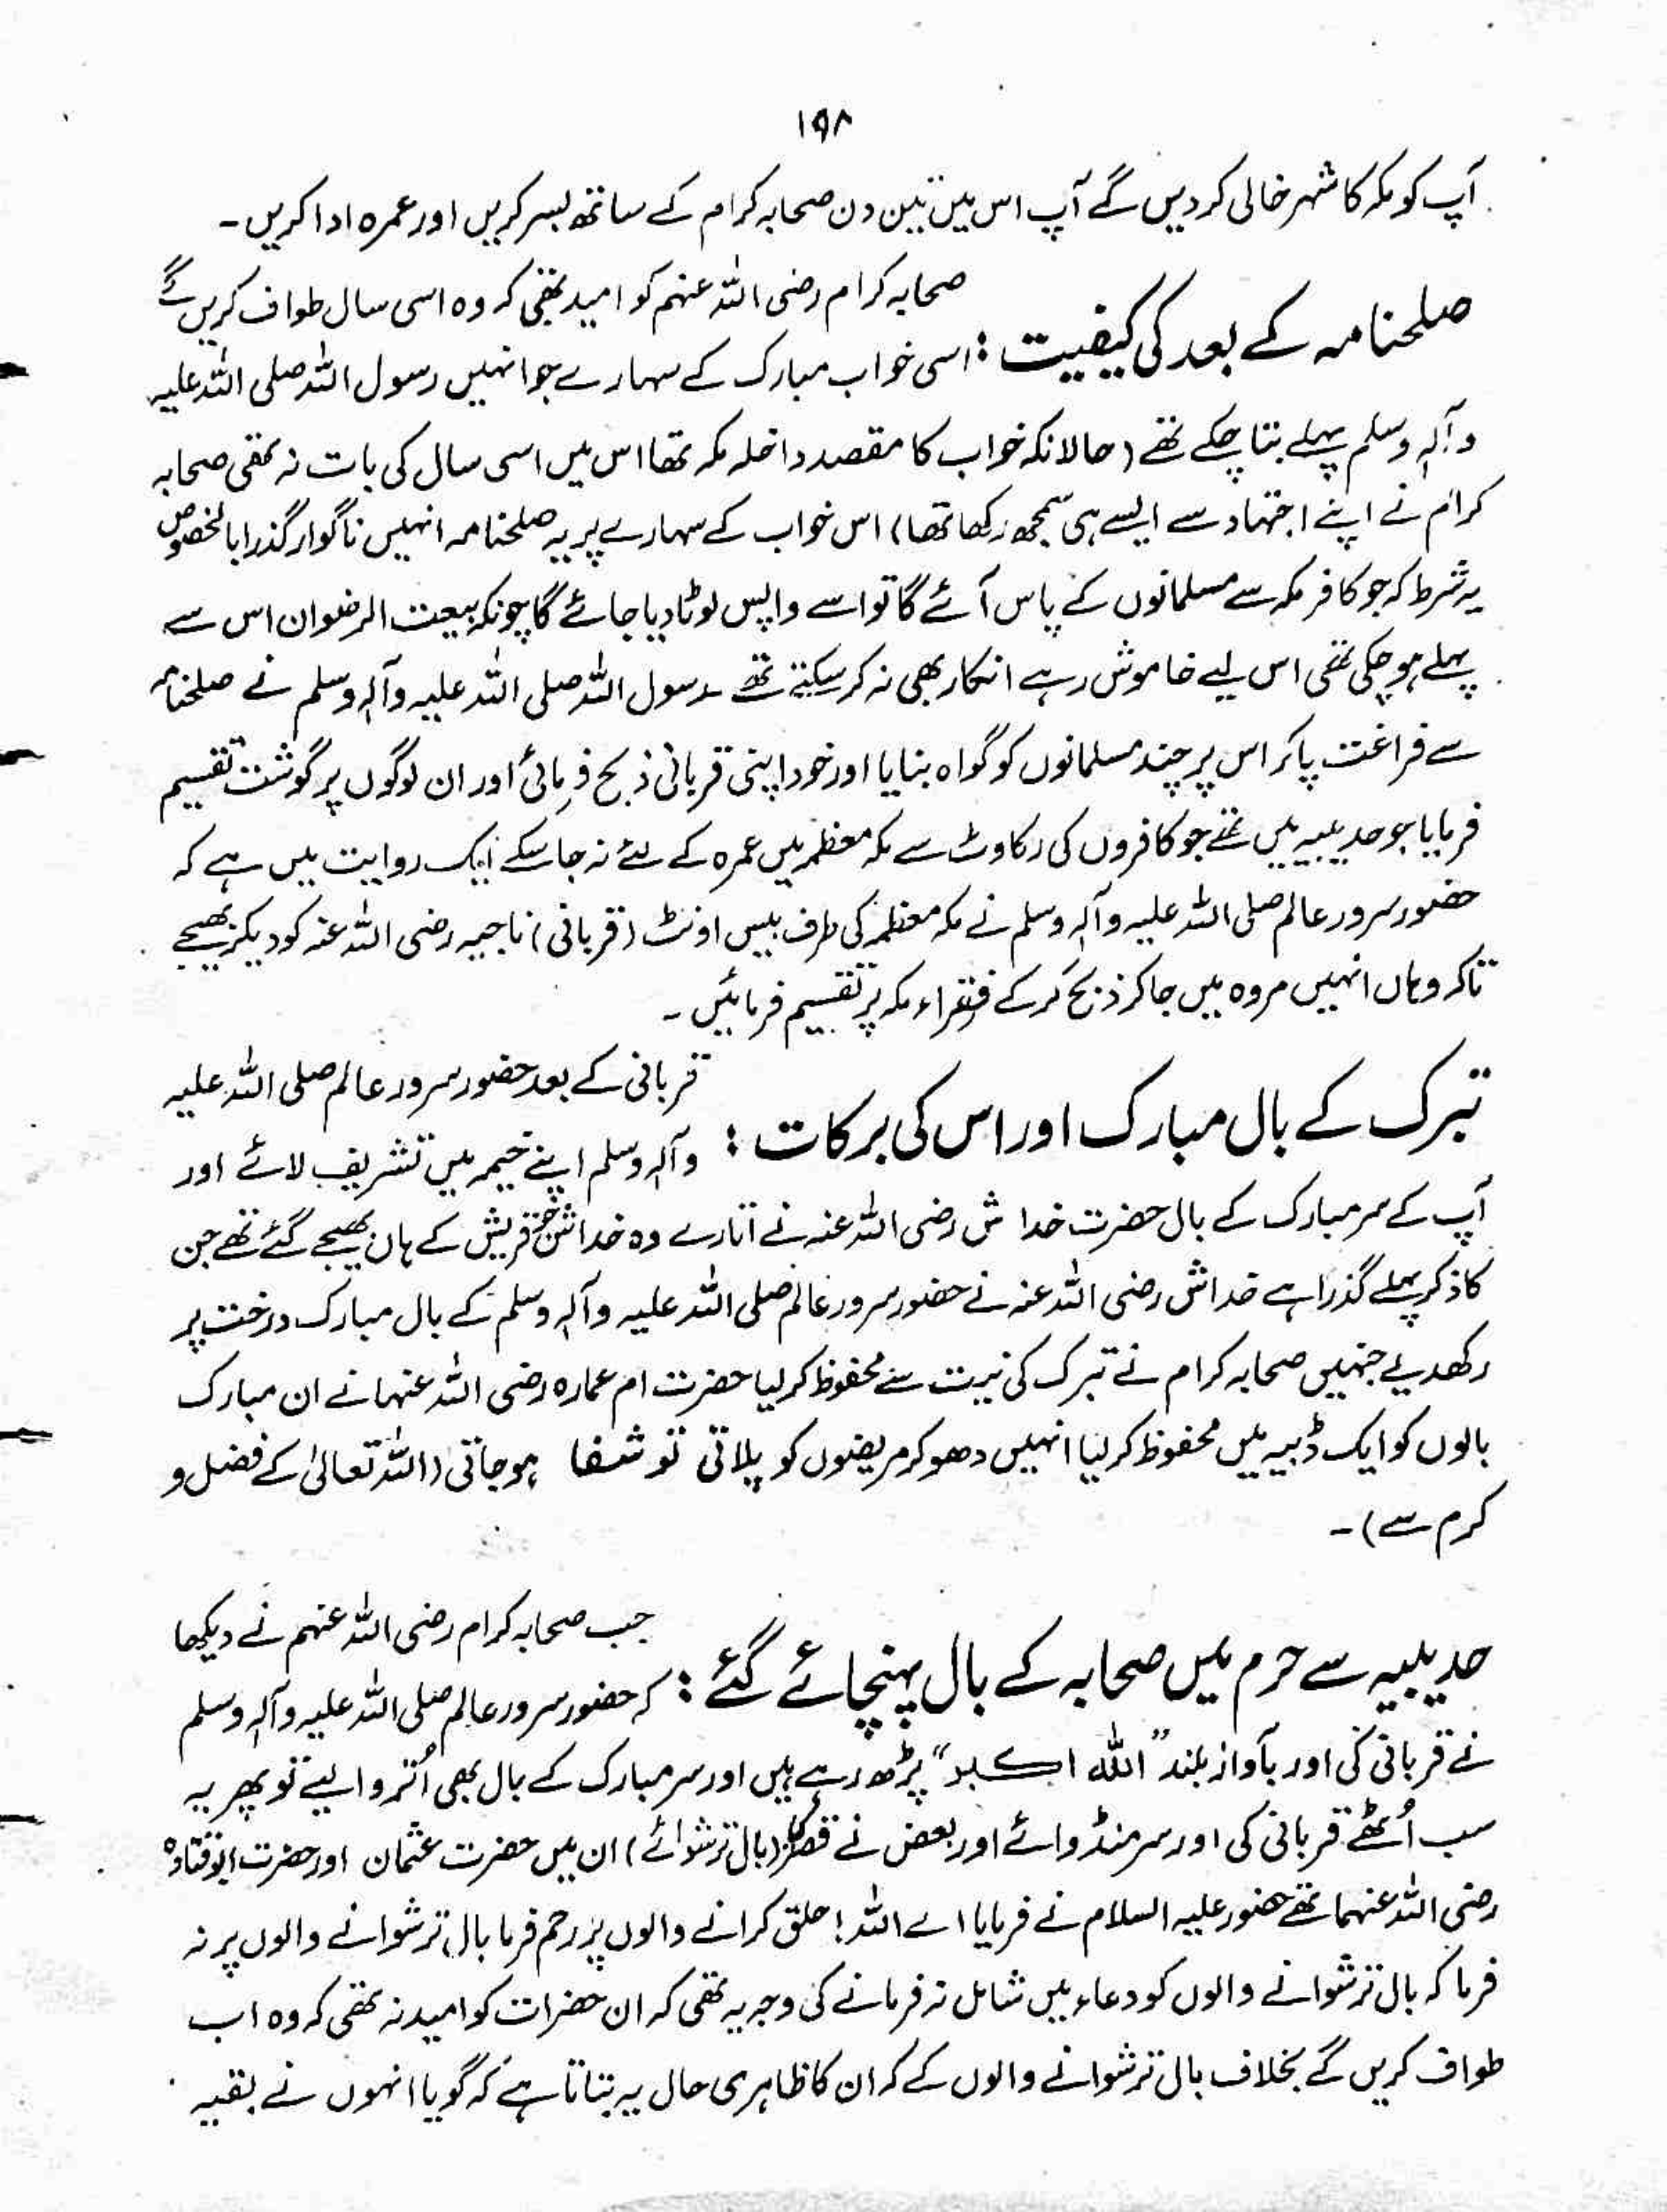 ۱۹۸
آپ کو مکہ کا شہر خالی کر دیں گے آپ اس میں تین دن صحابہ کرام کے ساتھ بسر کریں اور عمرہ ادا کریں۔
صلحنامہ کے بعد کی کیفیت :
صحابہ کرام رضی اللہ عنہم کو امید تھی کہ وہ اسی سال طواف کریں گے
اسی خواب مبارک کے سہارے جو انہیں رسول اللہ صلی اللہ علیہ
وآلہ وسلم پہلے بتا چکے تھے (حالانکہ خواب کا مقصد داخلہ مکہ تھا اس میں اسی سال کی بات نہ تھی صحابہ
کرام نے اپنے اجتہاد سے ایسے ہی سمجھ رکھا تھا) اس خواب کے سہارے پر یہ صلحنامہ انہیں ناگوار گذرا بالخصوص
یہ شرط کہ جو کافر مکہ سے مسلمانوں کے پاس آئے گا تو اسے واپس لوٹا دیا جائے گا چونکہ بیعت الرضوان اس سے
پہلے ہو چکی تھی اس لیے خاموش رہے انکار بھی نہ کر سکتے تھے۔ رسول اللہ صلی اللہ علیہ وآلہ وسلم نے صلحنامہ
سے فراغت پا کر اس پر چند مسلمانوں کو گواہ بنایا اور خود اپنی قربانی ذبح فرمائی اور ان لوگوں پر گوشت تقسیم
فرمایا جو حدیبیہ میں تھے جو کافروں کی رکاوٹ سے مکہ معظمہ میں عمرہ کے لئے نہ جا سکے ایک روایت میں ہے کہ
حضور سرور عالم صلی اللہ علیہ وآلہ وسلم نے مکہ معظمہ کی طرف بیس اونٹ (قربانی) ناجیہ رضی اللہ عنہ کو دیکر بھیجے
تاکہ وہاں انہیں مروہ میں جا کر ذبح کر کے فقراء مکہ پر تقسیم فرمائیں۔
تبرک کے بال مبارک اور اس کی برکات :
قربانی کے بعد حضور سرور عالم صلی اللہ علیہ
وآلہ وسلم اپنے خیمہ میں تشریف لائے اور
آپ کے سر مبارک کے بال حضرت خداش رضی اللہ عنہ نے اتارے وہ خداش جو قریش کے ہاں بھیجے گئے تھے جن
کا ذکر پہلے گذرا ہے خداش رضی اللہ عنہ نے حضور سرور عالم صلی اللہ علیہ وآلہ وسلم کے بال مبارک درخت پر
رکھدیے جنہیں صحابہ کرام نے تبرک کی نیت سے محفوظ کر لیا حضرت ام عمارہ رضی اللہ عنہا نے ان مبارک
بالوں کو ایک ڈبیہ میں محفوظ کر لیا انہیں دھو کر مریضوں کو پلاتی تو شفا ہو جاتی (اللہ تعالیٰ کے فضل و
کرم سے)۔
حدیبیہ سے حرم میں صحابہ کے بال پہنچائے گئے :
جب صحابہ کرام رضی اللہ عنہم نے دیکھا
کہ حضور سرور عالم صلی اللہ علیہ وآلہ وسلم
نے قربانی کی اور بآواز بلند "اللہ اکبر" پڑھ رہے ہیں اور سر مبارک کے بال بھی اُتروا لیے تو پھر یہ
سب اُٹھے قربانی کی اور سر منڈوائے اور بعض نے (بال ترشوائے) ان میں حضرت عثمان اور حضرت ابو قتادہ
رضی اللہ عنہما تھے حضور علیہ السلام نے فرمایا اے اللہ! حلق کرانے والوں پر رحم فرما بال ترشوانے والوں پر نہ
فرما کہ بال ترشوانے والوں کو دعاء میں شامل نہ فرمانے کی وجہ یہ تھی کہ ان حضرات کو امید نہ تھی کہ وہ اب
طواف کریں گے بخلاف بال ترشوانے والوں کے کہ ان کا ظاہری حال یہ بتاتا ہے کہ گویا انہوں نے بقیہ